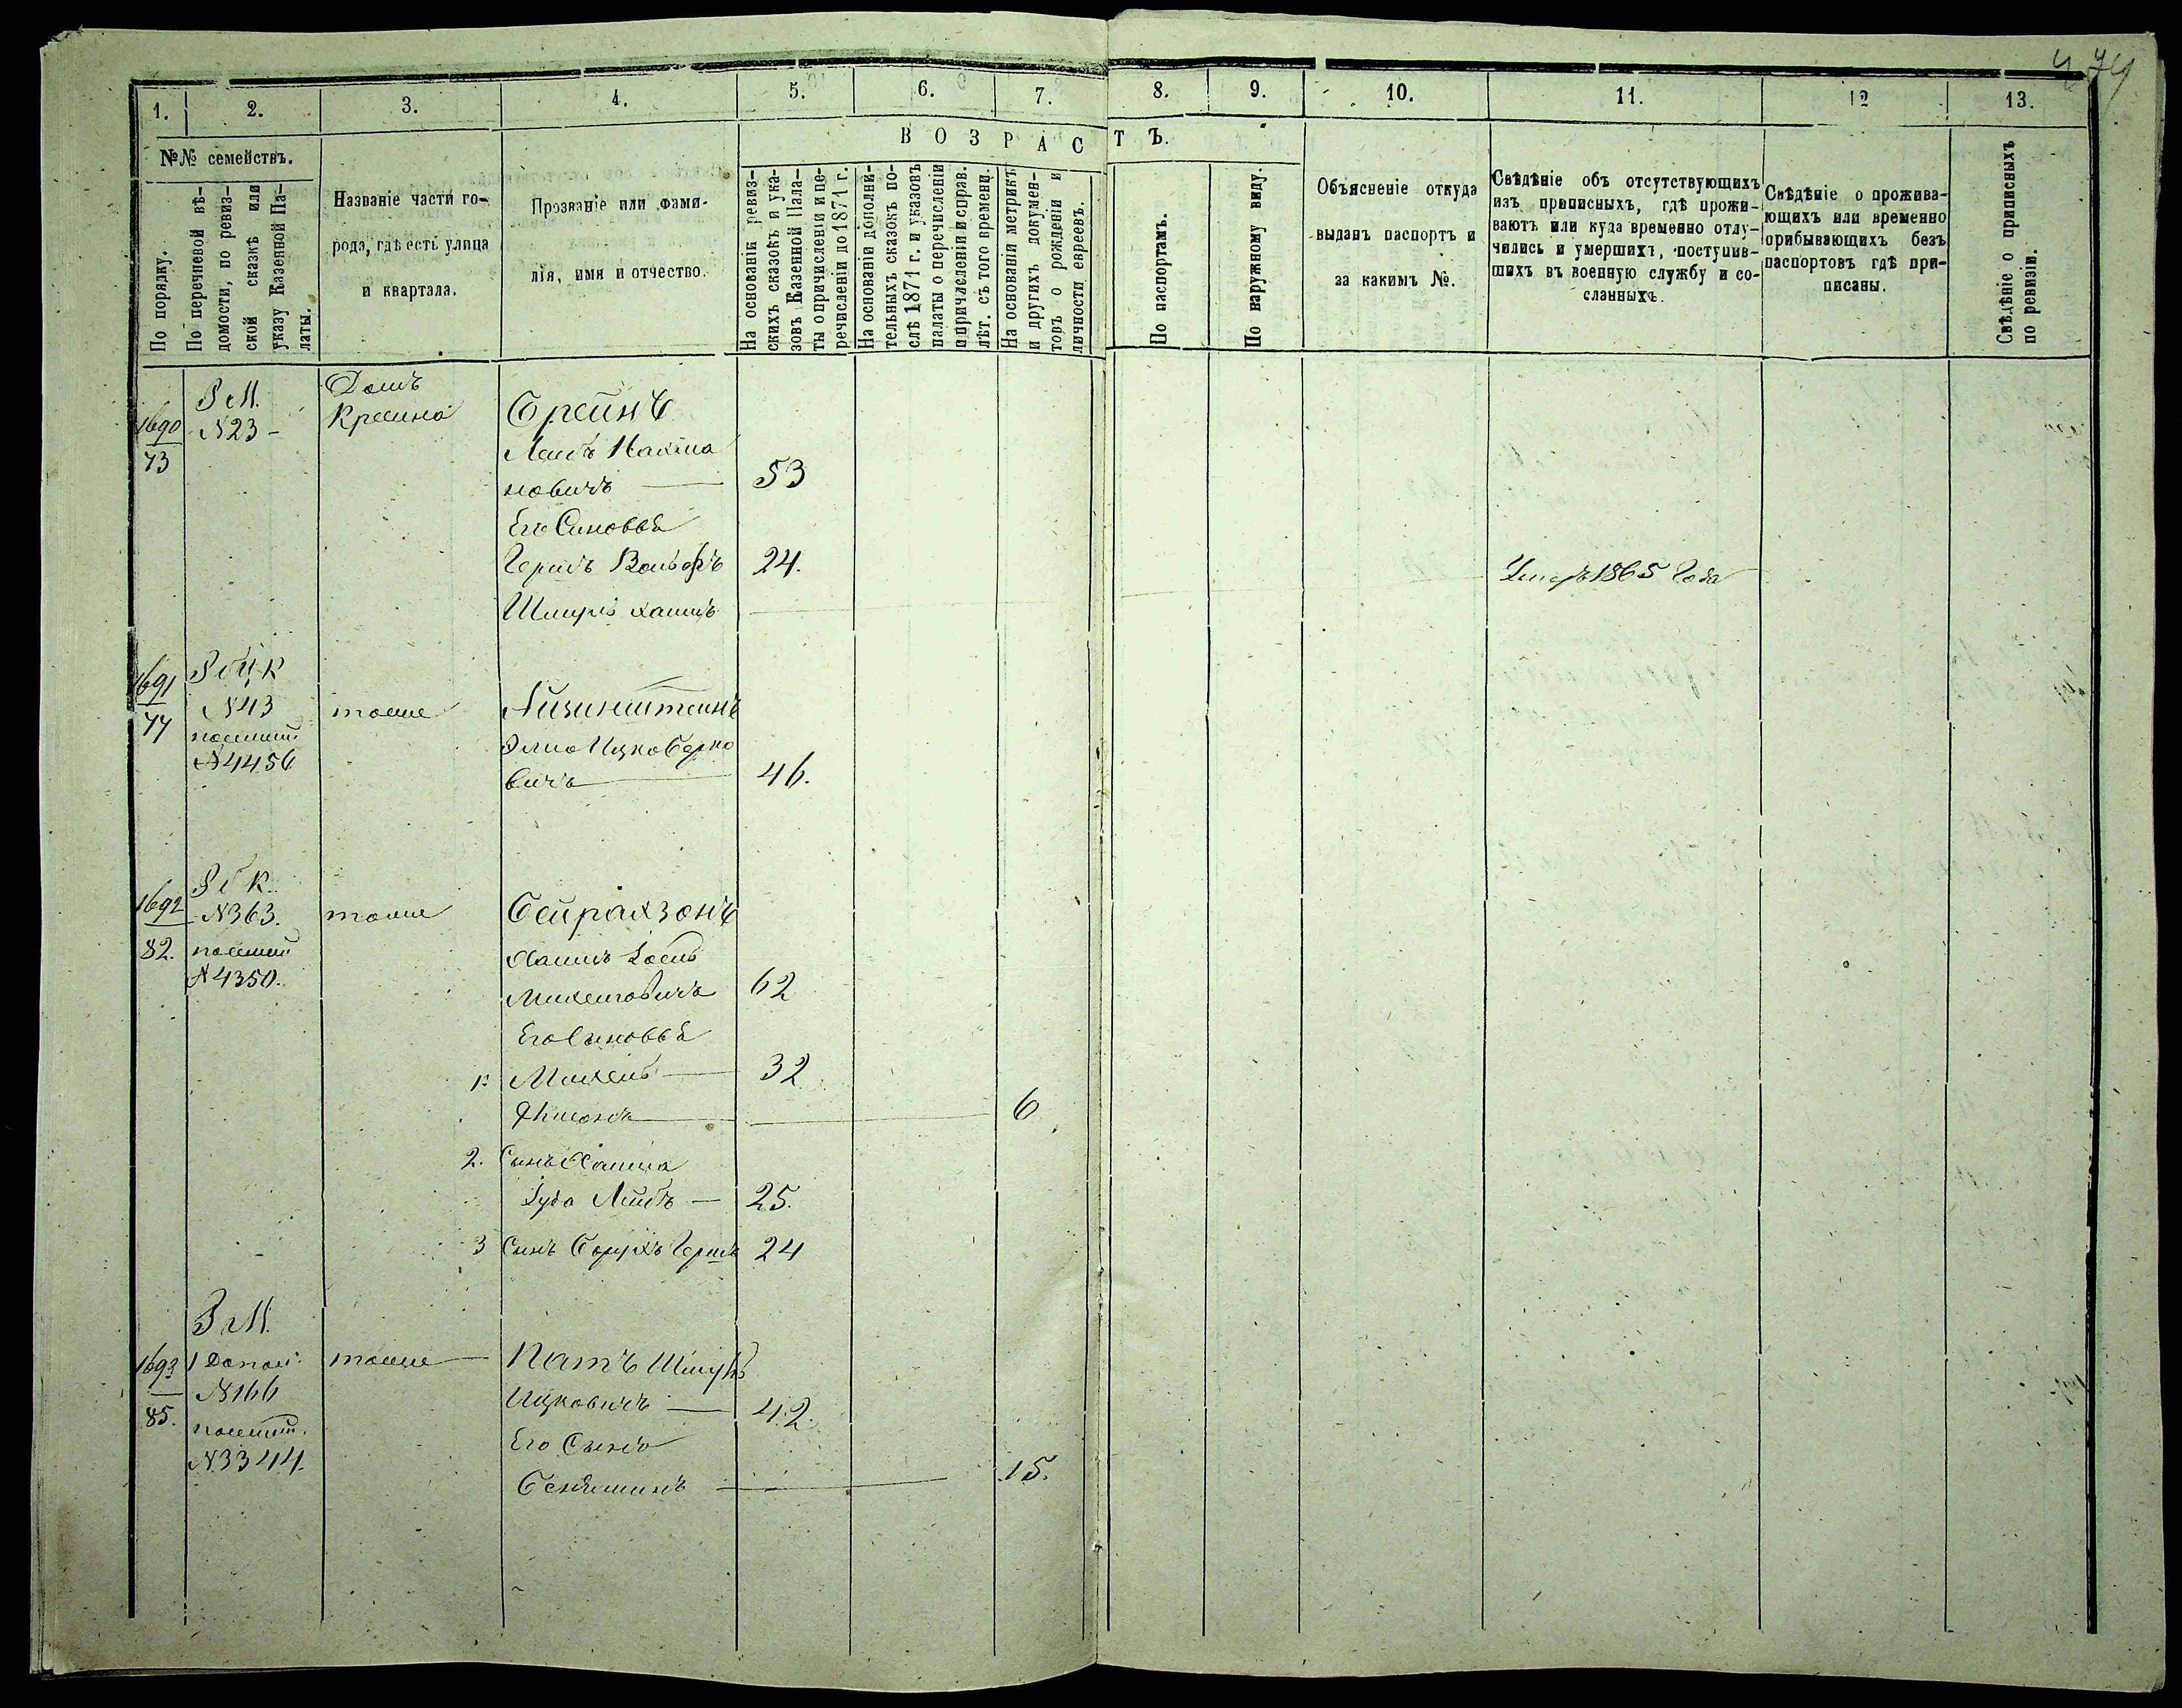 474
1. 2. 3. 4. 5. 6. 7. 8. 9. 10. 11. 12 13.
№№ семействъ.
ВОЗРАСТЪ.
По порядку.
По перечневой вѣ-
домости, по ревиз-
ской сказкѣ или
указу Казенной Па-
латы.
Названіе части го-
рода, гдѣ есть улица
и квартала.
Прозваніе или фами-
лія, имя и отчество.
На основаніи ревиз-
скихъ сказокъ и ука-
зовъ Казенной Пала-
ты о причисленіи и пе-
речисленіи до 1871 г.
На основаніи дополни-
тельныхъ сказокъ по-
слѣ 1871 г. и указовъ
палаты о перечисленіи
и причисленіи и справ.
лѣт. съ того времени.
На основаніи метрикъ
и другихъ докумен-
товъ о рожденіи и
личности евреевъ.
По паспортамъ.
По наружному виду.
Объясненіе откуда
выданъ паспортъ и
за какимъ №.
Свѣдѣніе объ отсутствующихъ
изъ приписныхъ, гдѣ прожи-
ваютъ или куда временно отлу-
чились и умершихъ, поступив-
шихъ въ военную службу и со-
сланныхъ.
Свѣдѣніе о прожива-
ющихъ или временно
прибывающихъ безъ
паспортовъ гдѣ при-
писаны.
Свѣдѣніе о приписныхъ
по ревизіи.
1690
73
Р М.
N23 -
Домъ
Бреинъ
Лейбъ Нахма
новичъ — 53
Его Сыновья
Гершъ Вольфъ 24. Умеръ 1865 Года
Шмуль Хаимъ
1691
77
N43
N4456
тоже
Айзинштейнъ
Элио Ицко Берко
вичъ 46.
1692
82.
Р б К.
N363.
N4350.
тоже
Бейрахзонъ
Хаимъ Іосель
Михелевичъ 62
Его Сыновья
1. Михель — 32
Шимонъ 6
2. Сынъ Хаима
Іуда Лейбъ — 25.
3 Сынъ Борухъ Гершъ 24
1693
85.
Р М.
1 Допол.
N166
N3344.
тоже
Патъ Шмуль
Ицковичъ — 42.
Его Сынъ
Беняминъ 15.